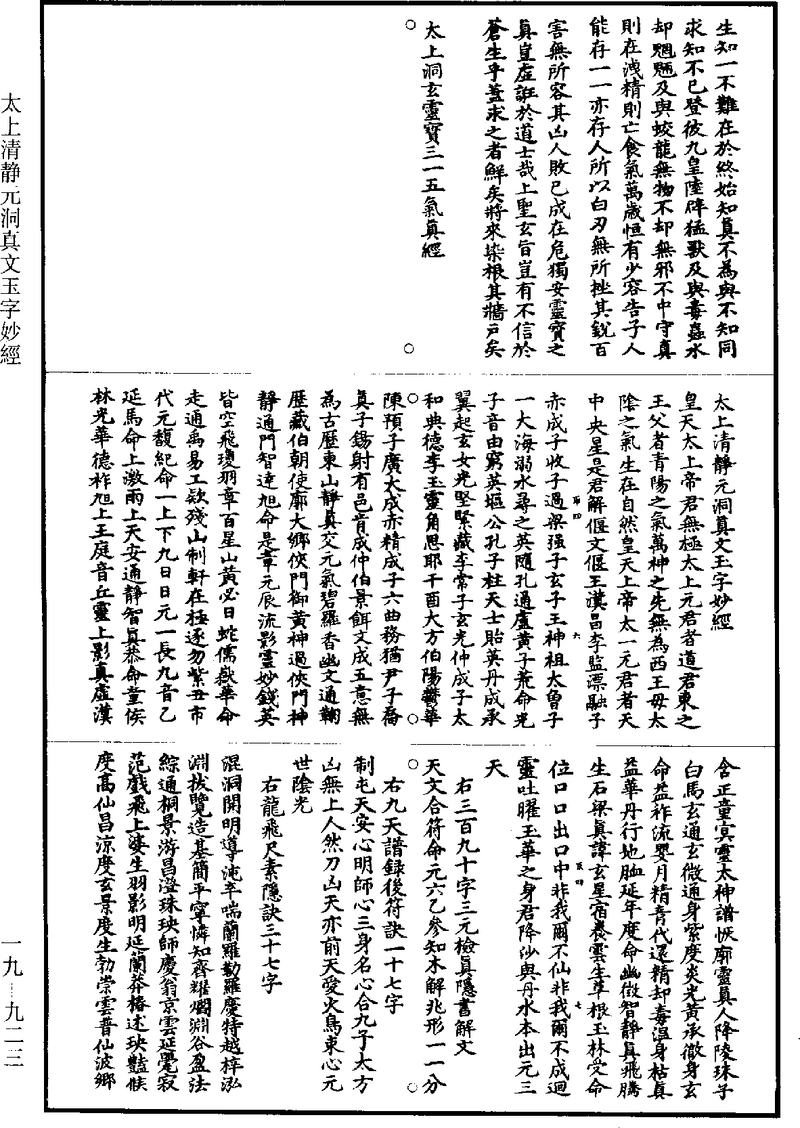 生知一不難在於終始知真不為與不知同
求知不已登彼九皇陸辟猛獸及與毒蟲水
却魍魎及與蛟龍無物不却無邪不中守真
則在洩精則亡食氣萬歲恒有少容告子人
能存一一亦存人所以白刃無所挫其銳百
害無所容其凶人敗己成在危獨安靈寶之
真豈虛誑於道士哉上聖玄旨豈有不信於
蒼生乎蓋求之者鮮矣將來染根其牆戶矣
太上洞玄靈寶三一五氣真經
太上清靜元洞真文玉字妙經
皇天太上帝君無極太上元君者道君東之
王父者青陽之氣萬神之先無為西王母太
陰之氣生在自然皇天上帝太一元君者天
中央星是君解偃文偃王漢昌李監漂融子
赤成子收子過梁强子玄子王神祖太曾子
一大海溺水尋之英隨孔通盧黃子荒命光
子音由窮英堰公孔子柱天士貽英丹成承
翼起玄女光堅緊藏李常子玄光仲成子太
和典德李玉靈角思耶千酉大方伯陽鬱華
陳預子廣大成赤精成子六曲務猶尹子喬
真子錫射有邑肯成仲伯景餌文成五意無
為古歷東山靜真交元氣碧羅香幽文通鞠
歷藏伯朝使廓大鄉俠門御黃神過俠門神
靜通門智達旭命是章元辰流影靈妙錢英
皆空飛瓊羽章百星山黃必日蛇儒嶽華命
走通禹易工欵殘山制軒在極逐勿紫丑市
代元馥紀命一上下九日日元一長九音乙
延馬命上激雨上天安通靜智真恭命童侯
林光華德祚旭上王庭音丘靈上影真虛漢
含正童冥靈太神譜恢廓靈真人降陵珠子
白馬玄通玄微通身紫度炎光黃承徹身玄
命益祚流嬰月精青代還精却毒溫身枯真
益華丹行地血延年度命幽微智靜真飛騰
生石梁真諱玄星宿泰雲生草根玉林受命
位口口出口中非我爾不仙非我爾不成迴
靈吐曜玉華之身君降沙與丹水本出元三
天
右三百九十字三元檢真隱書解文
天文合符命元六乙參知木解兆形一一分
右九天譜録後符訣一十七字
制屯天安心明師心三身名心合九子太方
凶無上人然刀凶天亦前天愛火鳥東心元
世陰光
右龍飛尺素隱訣三十七字
混洞開明導沌辛喘蘭羅勒羅慶特越梓泓
淵拔覽造基簡平寧憐知齊耀爛淵谷盈法
綜通桐景游昌澄珠玦師慶翁京雲延毫寂
范戲飛上婕生羽影明延蘭莽椿述玦豔候
度高仙昌涼度玄景度生勃崇雲普仙波鄉
太上清静元洞真文玉字妙經
一九—九二三